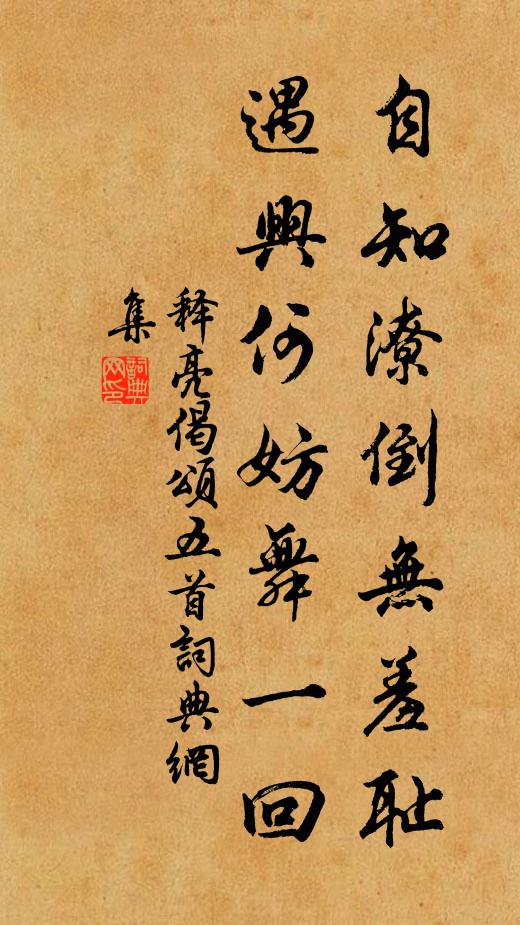 自知潦倒無羞耻
遇興何妨舞一回
释亮偈頌五首詞典網
集
詞典网印